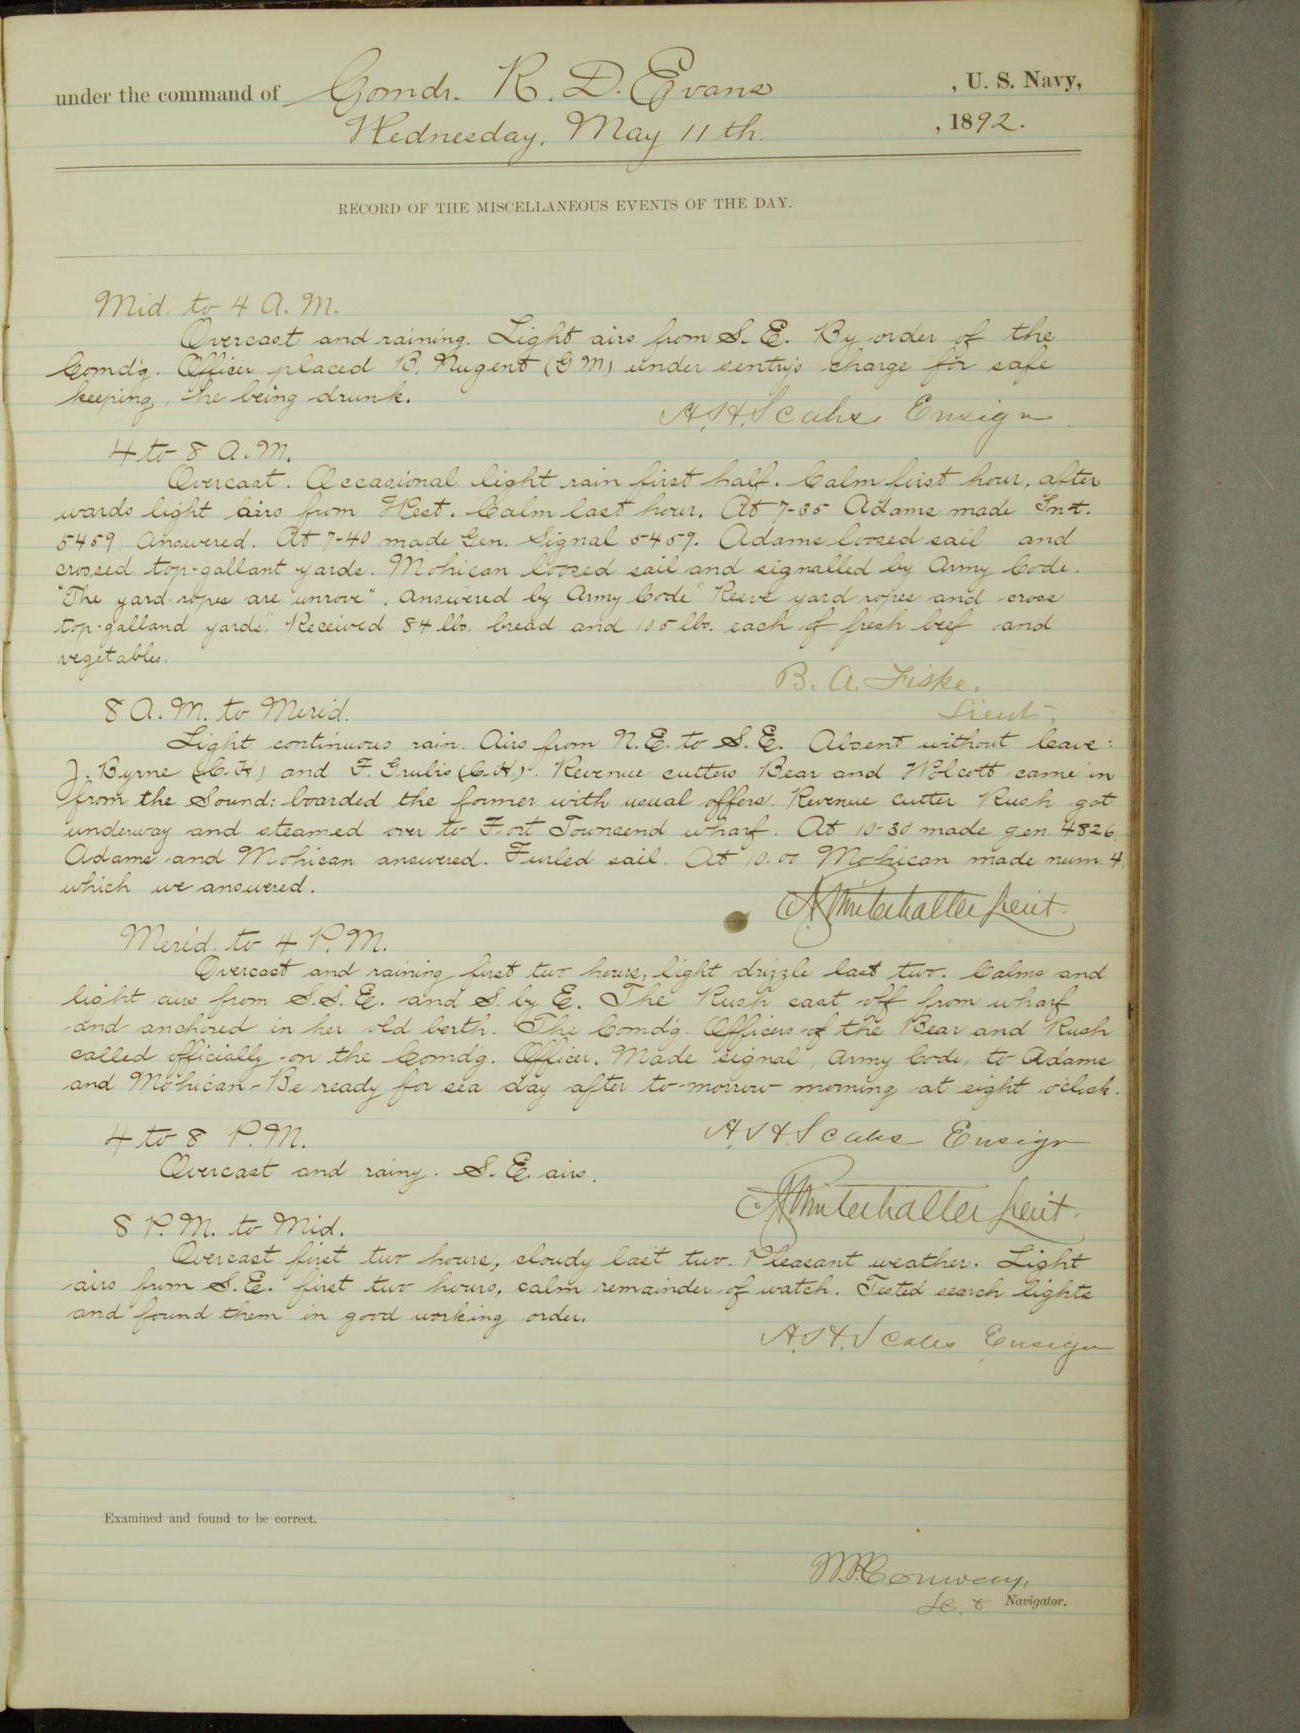 under the command of Comdr. R. D. Evans , U. S. Navy,
Wednesday, May 11th. , 1892.
RECORD OF THE MISCELLANEOUS EVENTS OF THE DAY.
Mid. to 4 A. M.
Overcast and raining. Light airs from S. E. By order of the
Comd'g. Officer placed B. Nugent (G.M) under sentry's charge for safe
keeping, he being drunk.
A. S. H. Scales Ensign
4 to 8 A. M.
Overcast. Occasional light rain first half. Calm first hour, after
wards light airs from West. Calm last hour. At 7-35 Adams made Int.
5459 Answered. At 7-40 made Gen. Signal 5459. Adams loosed sail and
crossed top-gallant yards. Mohican loosed sail and signalled by Army Code.
"The yard ropes are unrove". Answered by Army Code "Reeve yard ropes and cross
top-galland yards". Received 84 lbs. bread and 105 lbs. each of fresh beef and
vegetables.
B. A. Fiske,
Lieut.
8 A. M. to Merid.
Light continuous rain. Airs from N. E. to S. E. Absent without leave:
J. Byrne (C.H.) and F. Grubis (C.H.). Revenue cutters Bear and Wolcott came in
from the Sound: boarded the former with usual offers. Revenue cutter Rush got
underway and steamed over to Fort Townsend wharf. At 10-30 made gen 4826,
Adams and Mohican answered. Furled sail. At Mohican made num. 4
which we answered.
A. G. Winterhalter Lieut.
Merid. to 4 P. M.
Overcast and raining first two hours, light drizzle last two. Calms and
light airs from S. S. E. and S. by E. The Rush cast off from wharf
and anchored in her old berth. The Comd'g. Officers of the Bear and Rush
called officially on the Comd'g. Officer. Made signal, Army Code, to Adams
and Mohican - Be ready for sea day after to-morrow morning at eight o'clock.
A. S. H. Scales Ensign
4 to 8 P. M.
Overcast and rainy. S. E. airs.
A. G. Winterhalter Lieut.
8 P. M. to Mid.
Overcast first two hours, cloudy last two. Pleasant weather. Light
airs from S. E. first two hours, calm remainder of watch. Tested search lights
and found them in good working order.
A. S. H. Scales Ensign
Examined and found to be correct.
W. P. Conway,
Navigator.